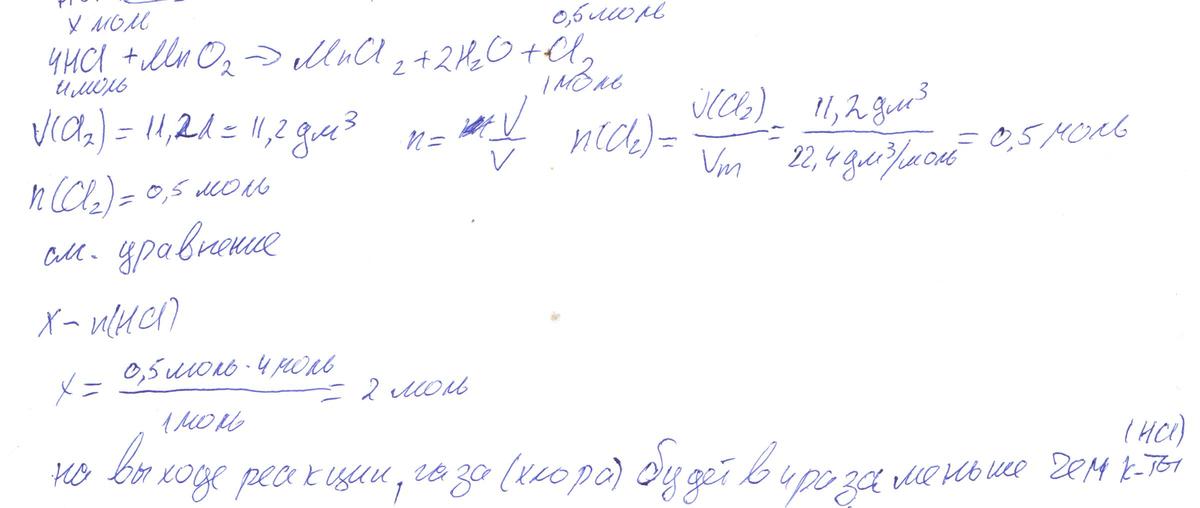 x моль 0,5 моль
4HCl + MnO2 => MnCl2 + 2H2O + Cl2
4 моль 1 моль
V(Cl2) = 11,2 л = 11,2 дм³ n = V/V n(Cl2) = V(Cl2)/Vm = 11,2 дм³/22,4 дм³/моль = 0,5 моль
n(Cl2) = 0,5 моль
см. уравнение
x - n(HCl)
x = 0,5 моль · 4 моль/1 моль = 2 моль
на выходе реакции, газа (хлора) будет в 4 раза меньше чем к-ты (HCl)